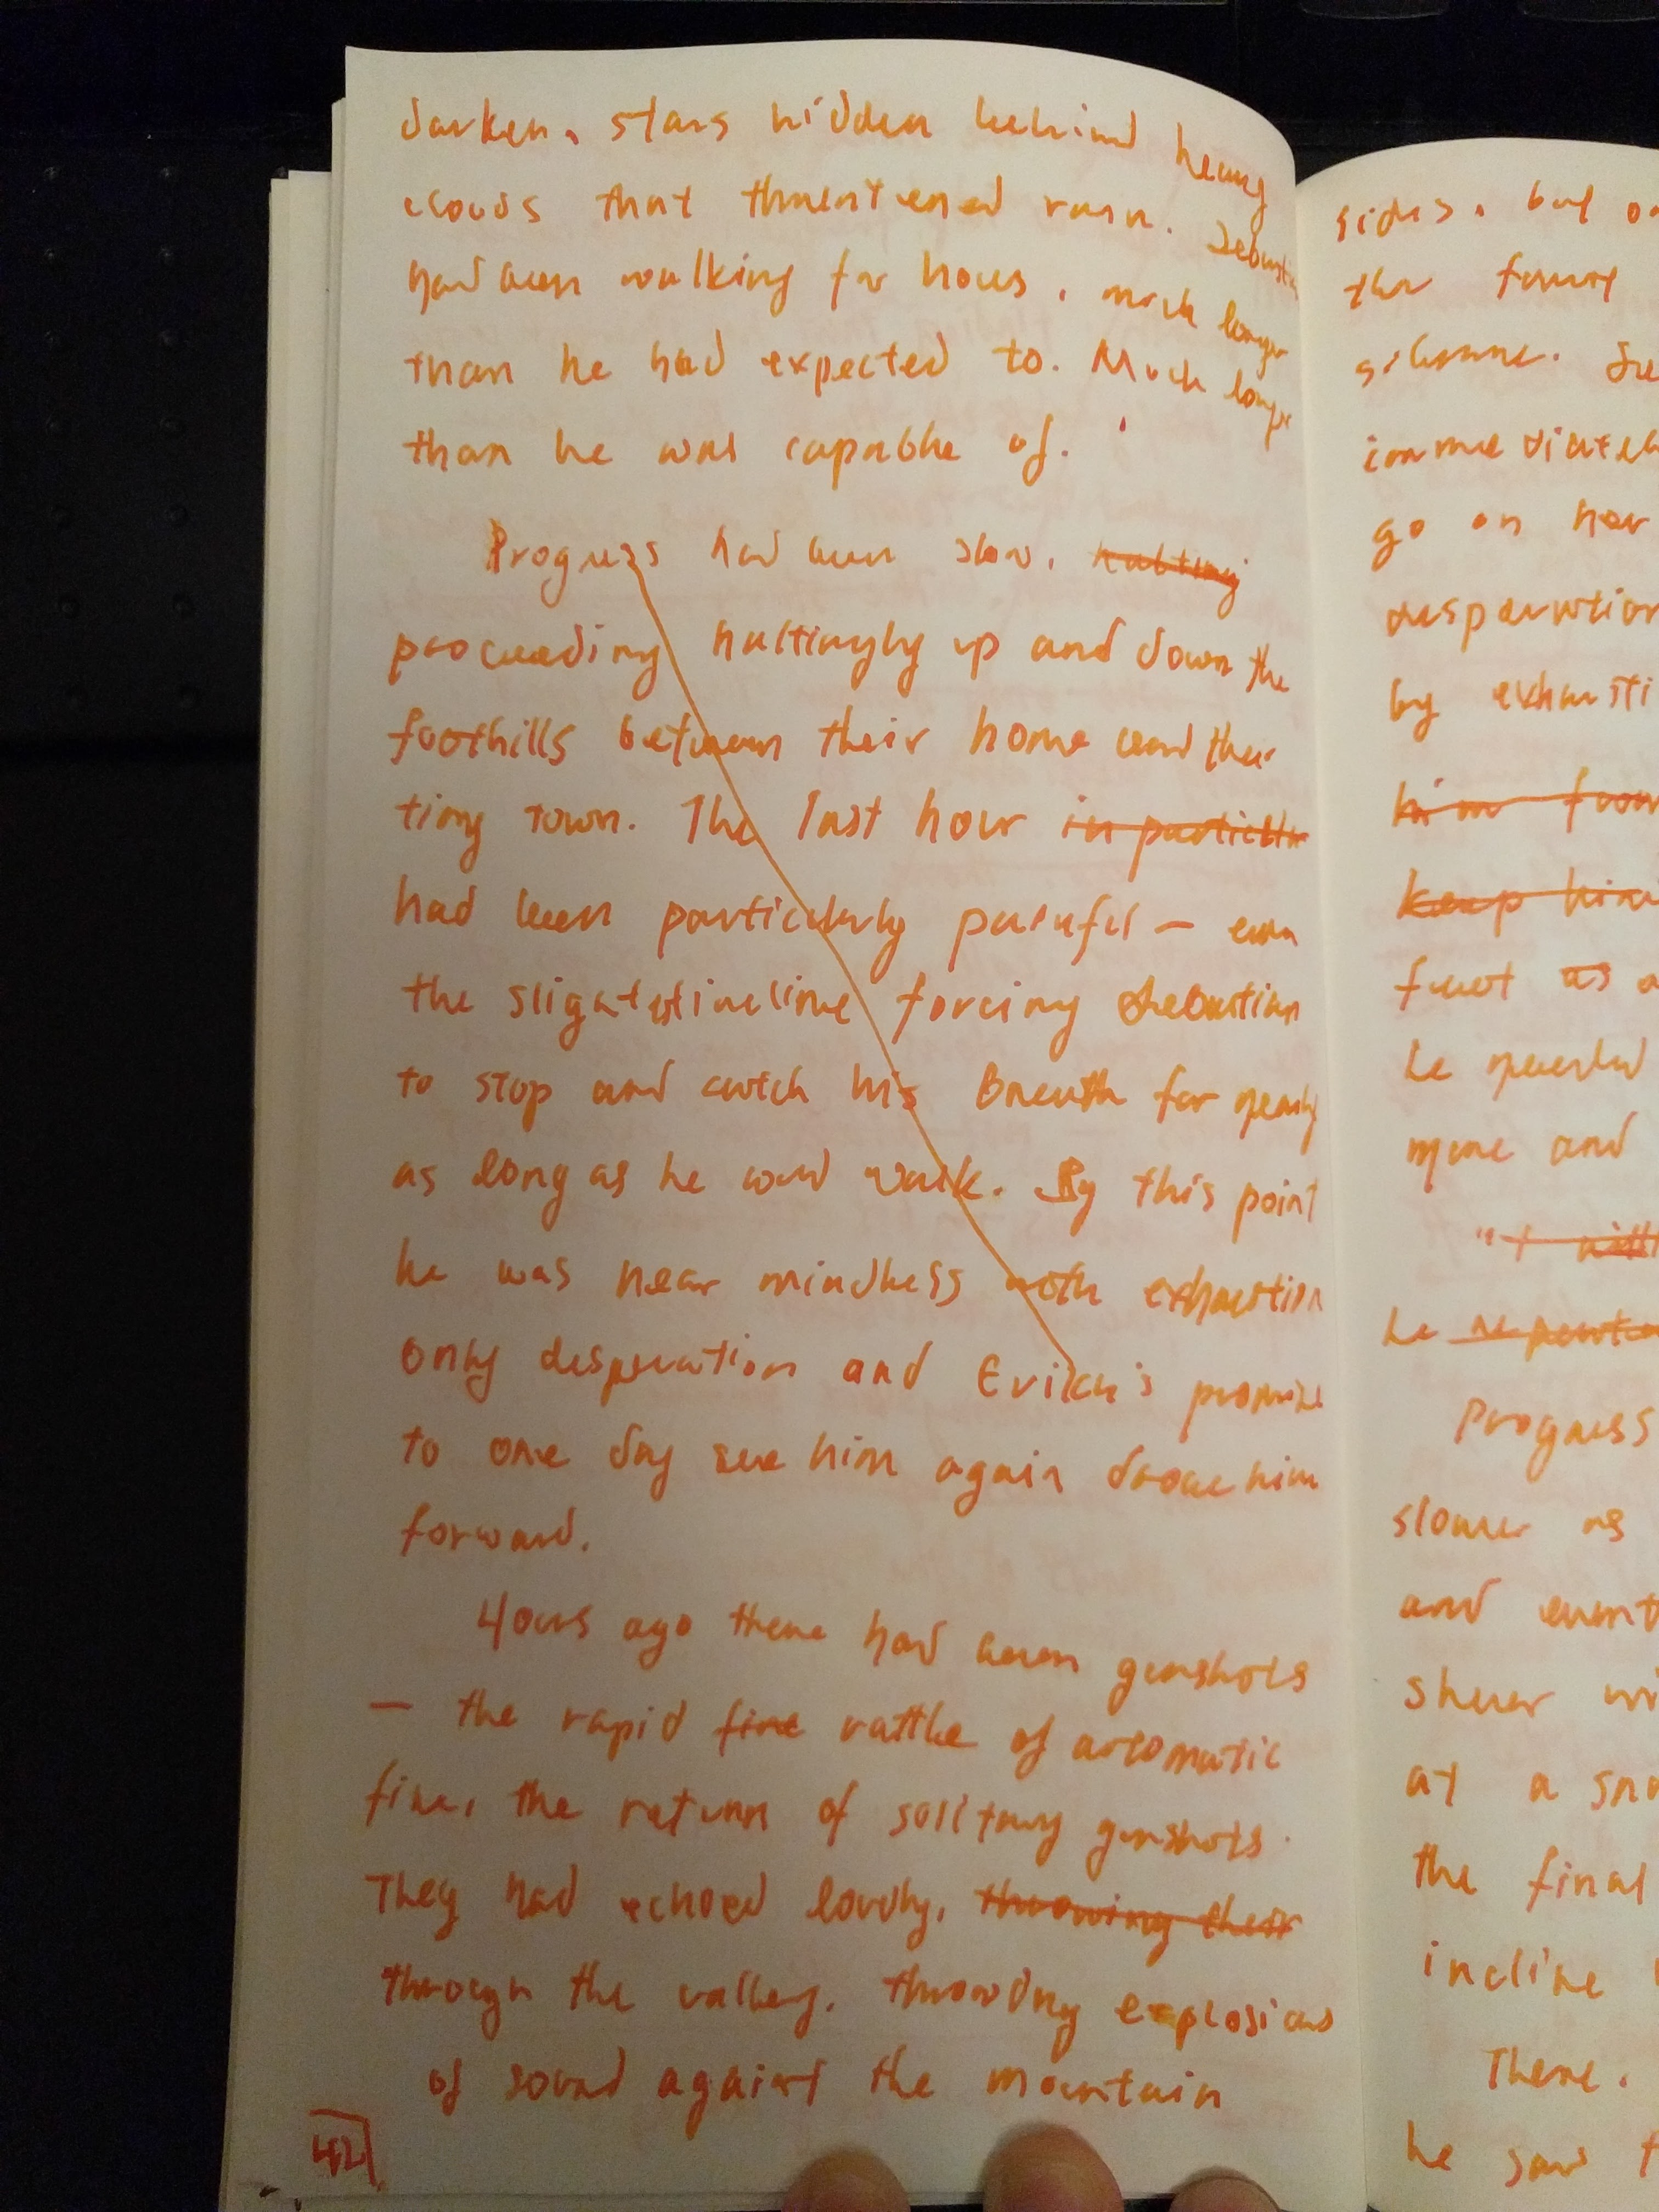 darken, stars hidden behind heavy
clouds that threatened rain. Sebastian
had been walking for hours, much longer
than he had expected to. Much longer
than he was capable of.
Progress had been slow, halting
proceeding haltingly up and down the
foothills between their home and their
tiny town. The last hour in particular
had been particularly painful — even
the slightest incline forcing Sebastian
to stop and catch his breath for nearly
as long as he would walk. By this point
he was near mindless with exhaustion
only desperation and Erich's promise
to one day see him again drove him
forward.
Hours ago there had been gunshots
— the rapid fire rattle of automatic
fire, the return of solitary gunshots.
They had echoed loudly, throwing their
through the valley, throwing explosions
of sound against the mountain
42
sides, but
the forest
silence.
immediately
go on
desperation
by
him from
keep him
feet as a
he
more and
"I
he
Progress
slower as
and
sheer
at a
the final
incline
There.
he saw